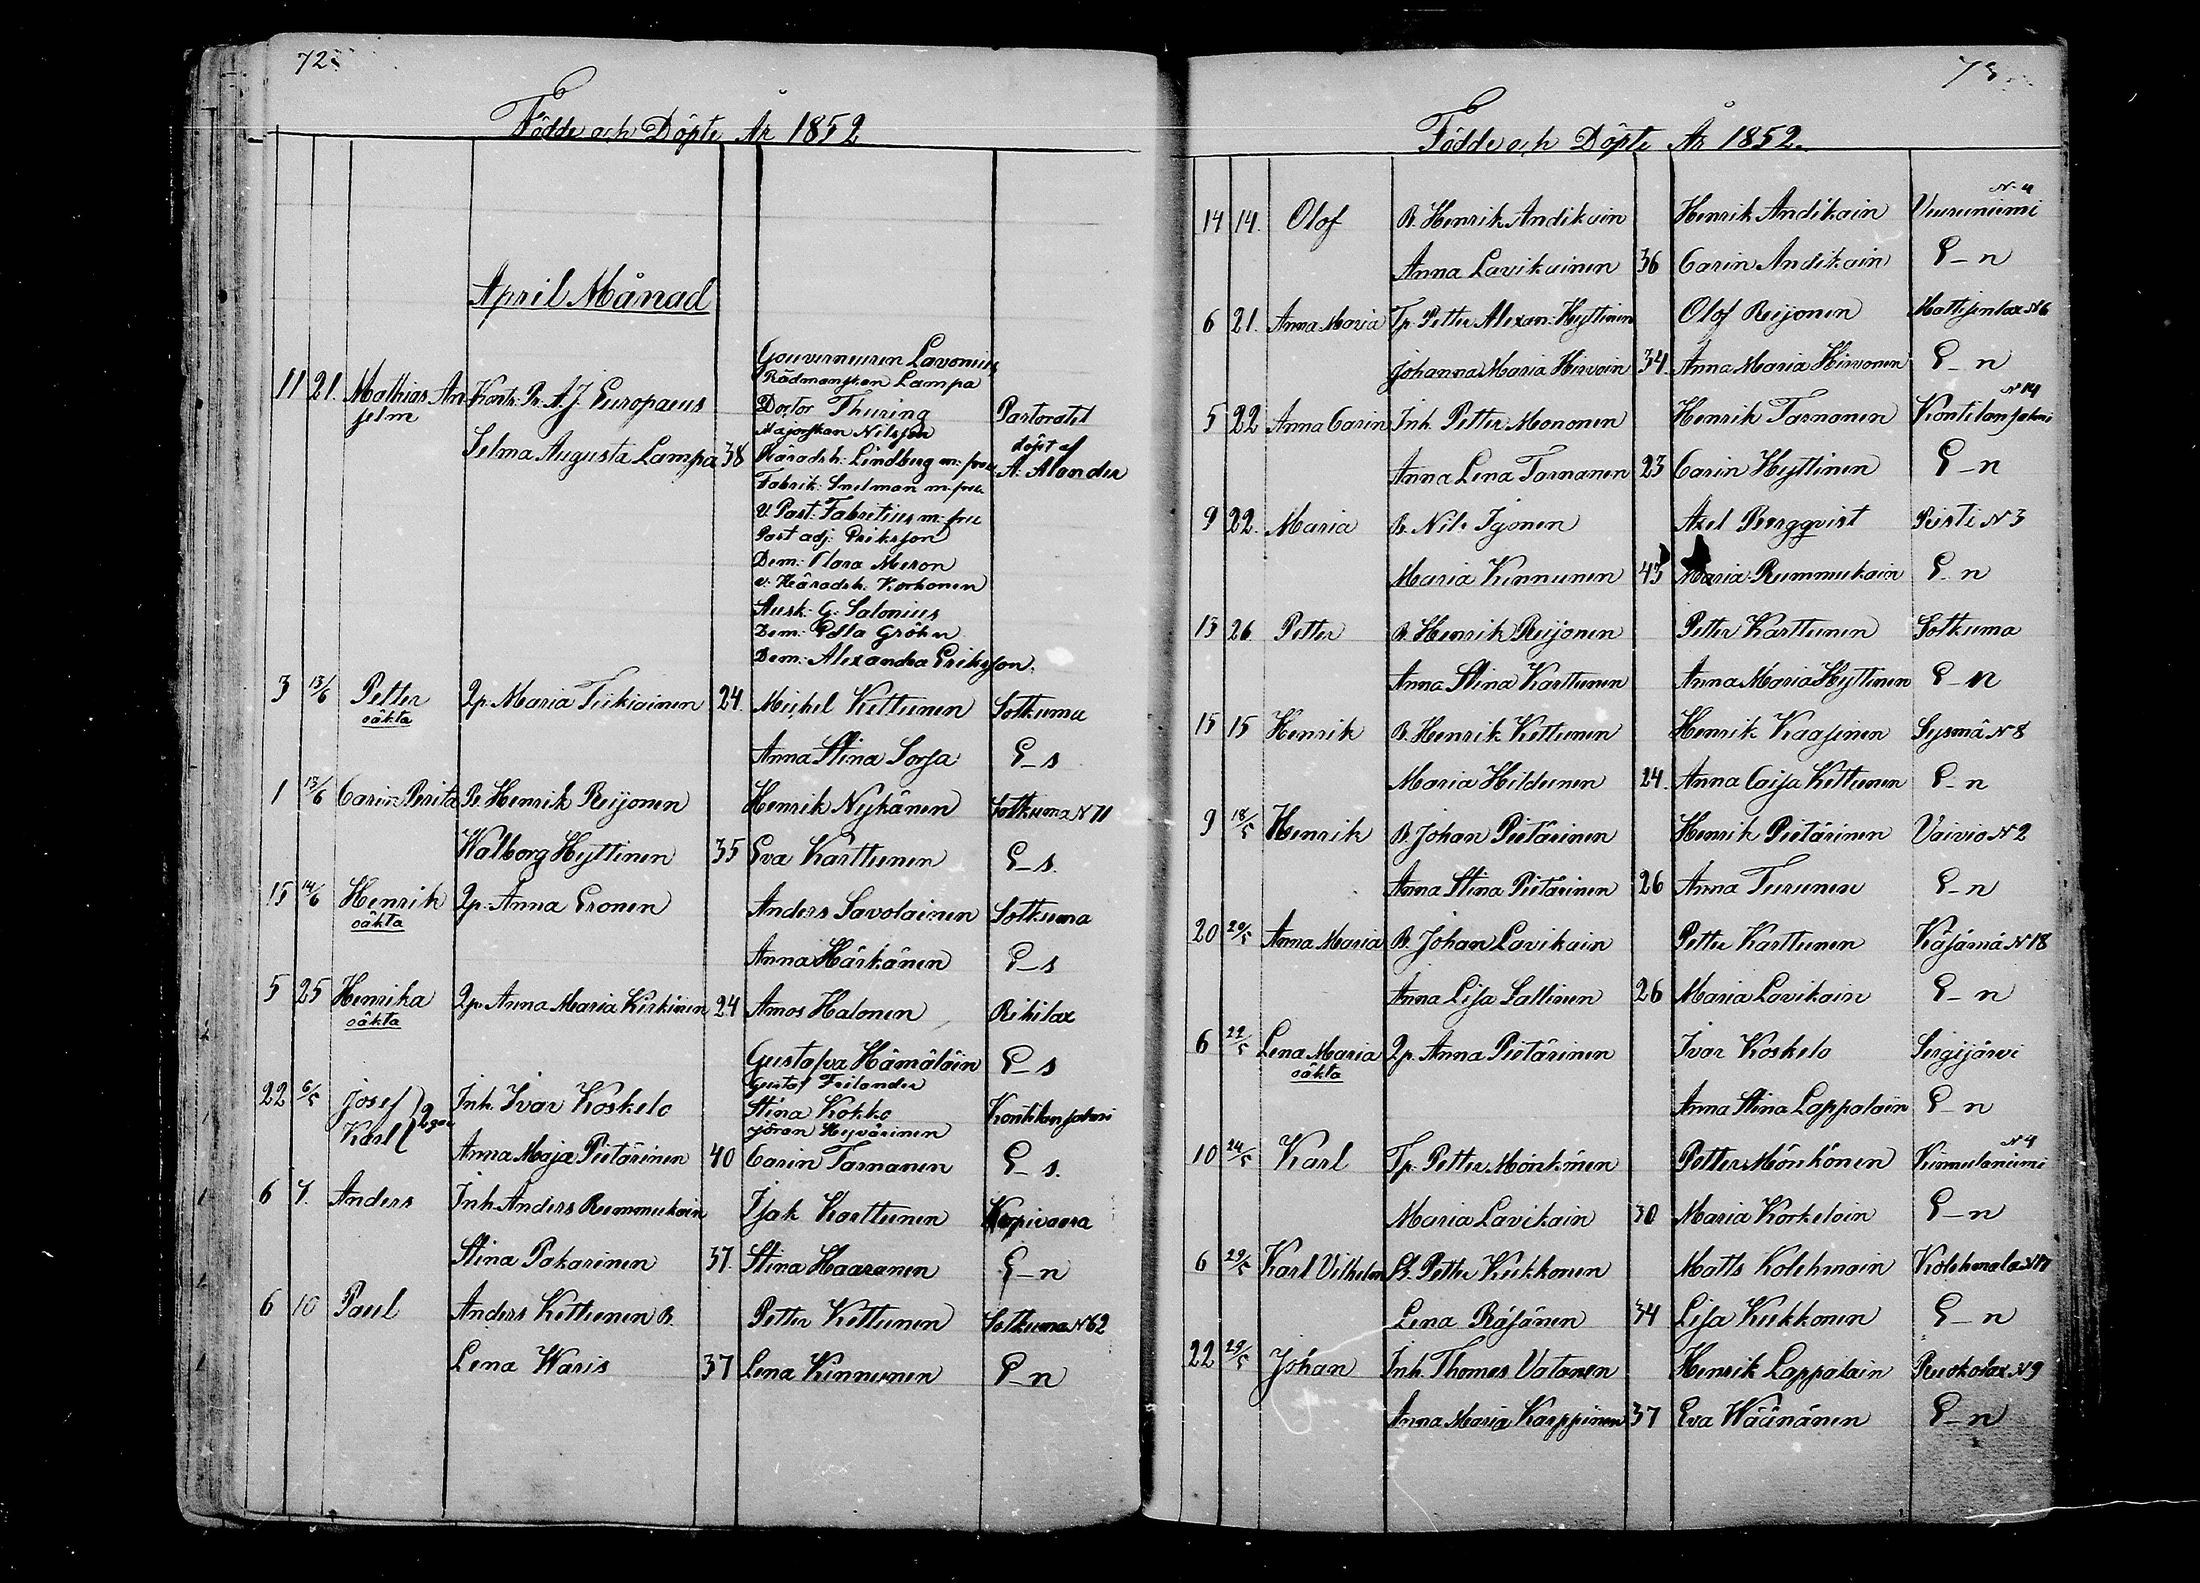 72
Födde och Döpte År 1852
April Månad
11 21. Mathias An Kontr. Pr. A J. Europaeus Gouverneuren Lavonius
selm Rådmanskan Lampa
Doctor Thuring Pastoratet
Majorskan Nilsson döpt af
Selma Augusta Lampa 38 Häradsh: Lindberg m: fru A: Alander
Fabrik: Snelman m: fru
V: Past: Fabritius m: fru
Past adj: Eriksson
Dem: Clara Meron
v: Häradsh. Korhonen
Ausk: G: Salonius
Dem: Edla Gröhn
Dem: Alexandra Eriksson.
3 13/6 Petter Qp. Maria Tiikiainen 24. Michel Kettunen Sotkuma
oäkta
Anna Stina Sorsa E_s
1 13/6 Carin Berita B. Henrik Reijonen Henrik Nykänen Sotkuma N 71
Walborg Hyttinen 35 Eva Karttunen E_s.
15 14/6 Henrik Qp. Anna Eronen Anders Savolainen Sotkuma
oäkta
Anna Härkänen E_s
5 25 Henrika Qp. Anna Maria Kirkinen 24 Amos Halonen Rikilax
oäkta
Gustafva Hämäläin E_s
Gustaf Frilander
22 6/5 Josef Inh. Ivar Koskelo Stina Kokko Kontilanjakmi
Karl Göran Hyvärinen
Anna Maja Pietärinen 40 Carin Tarnanen E_s.
6 7. Anders Inh. Anders Rummukain Isak Karttunen Karpivaara
Stina Pakarinen 37. Stina Haaranen E_n
6 10 Paul Anders Kettunen B. Petter Kettunen Sotkuma N 62
Lena Waris 37 Lena Kinnunen E_n
73
Födde och Döpte År 1852.
N. 4
14 14. Olof B. Henrik Andikain Henrik Andikain Vuoruniemi
Anna Lavikainen 36 Carin Andikain E_n
6 21. Anna Maria Tp. Petter Alexan: Hyttinen Olof Reijonen Mattisenlax N 6
Johanna Maria Hirvoin 34. Anna Maria Hirvonen E_n
N 14
5 22 Anna Carin Inh. Petter Mononen Henrik Tarnanen Kontilanjakmi
Anna Lena Tarnanen 23 Carin Hyttinen E_n
9 22. Maria B. Nils Igonen Axel Bergqvist Risti N 3
Maria Kinnunen 43 Maria Rummukain E_n
13 26 Petter B. Henrik Reijonen Petter Karttunen Sotkuma
Anna Stina Karttunen Anna Maria Hyttinen E_n
15 15 Henrik B. Henrik Kettunen Henrik Kaasinen Sysmä N 8
Maria Hildunen 24. Anna Caisa Kettunen E_n
9 18/5 Henrik B. Johan Pietärinen Henrik Pietärinen Vaivio N 2
Anna Stina Pietärinen 26 Anna Turunen E_n
20 20/5 Anna Maria B. Johan Lavikain Petter Karttunen Käsämä N 18
Anna Lisa Sallinen 26 Maria Lavikain E_n
6 22/5 Lena Maria Qp. Anna Pietärinen Ivar Koskelo Sergijärvi
oäkta
Anna Stina Lappalain E_n
N 4
10 24/5 Karl Tp. Petter Mönkönen Petter Mönkönen Kinnulaniemi
Maria Lavikain 30 Maria Korkeloin E_n
6 29/5 Karl Vilhelm B. Petter Kukkonen Matts Kolehmain Kolehmala N 17
Lena Räsänen 34 Lisa Kukkonen E_n
22 29/5 Johan Inh. Thomas Vatanen Henrik Lappalain Ruokolax N 9
Anna Maria Karppinen 37 Eva Wäänänen E_n